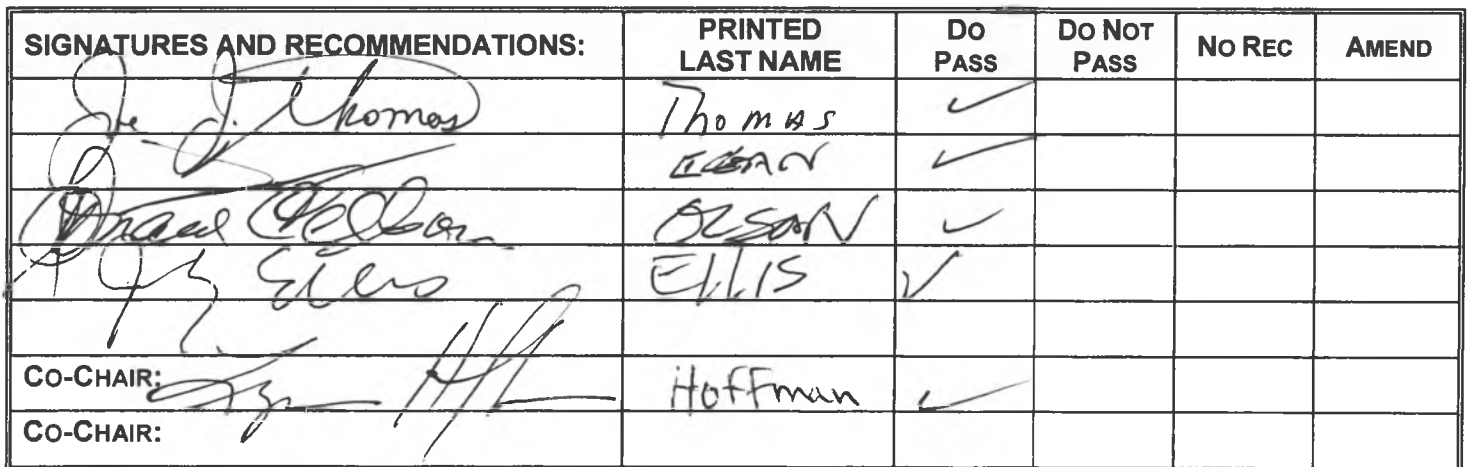 SIGNATURES AND RECOMMENDATIONS: PRINTED LAST NAME DO PASS DO NOT PASS NO REC AMEND
Joe J. Thomas Thomas ✓
✓
Olson OLSON ✓
Ellis ELLIS ✓
CO-CHAIR: Hoffman ✓
CO-CHAIR: